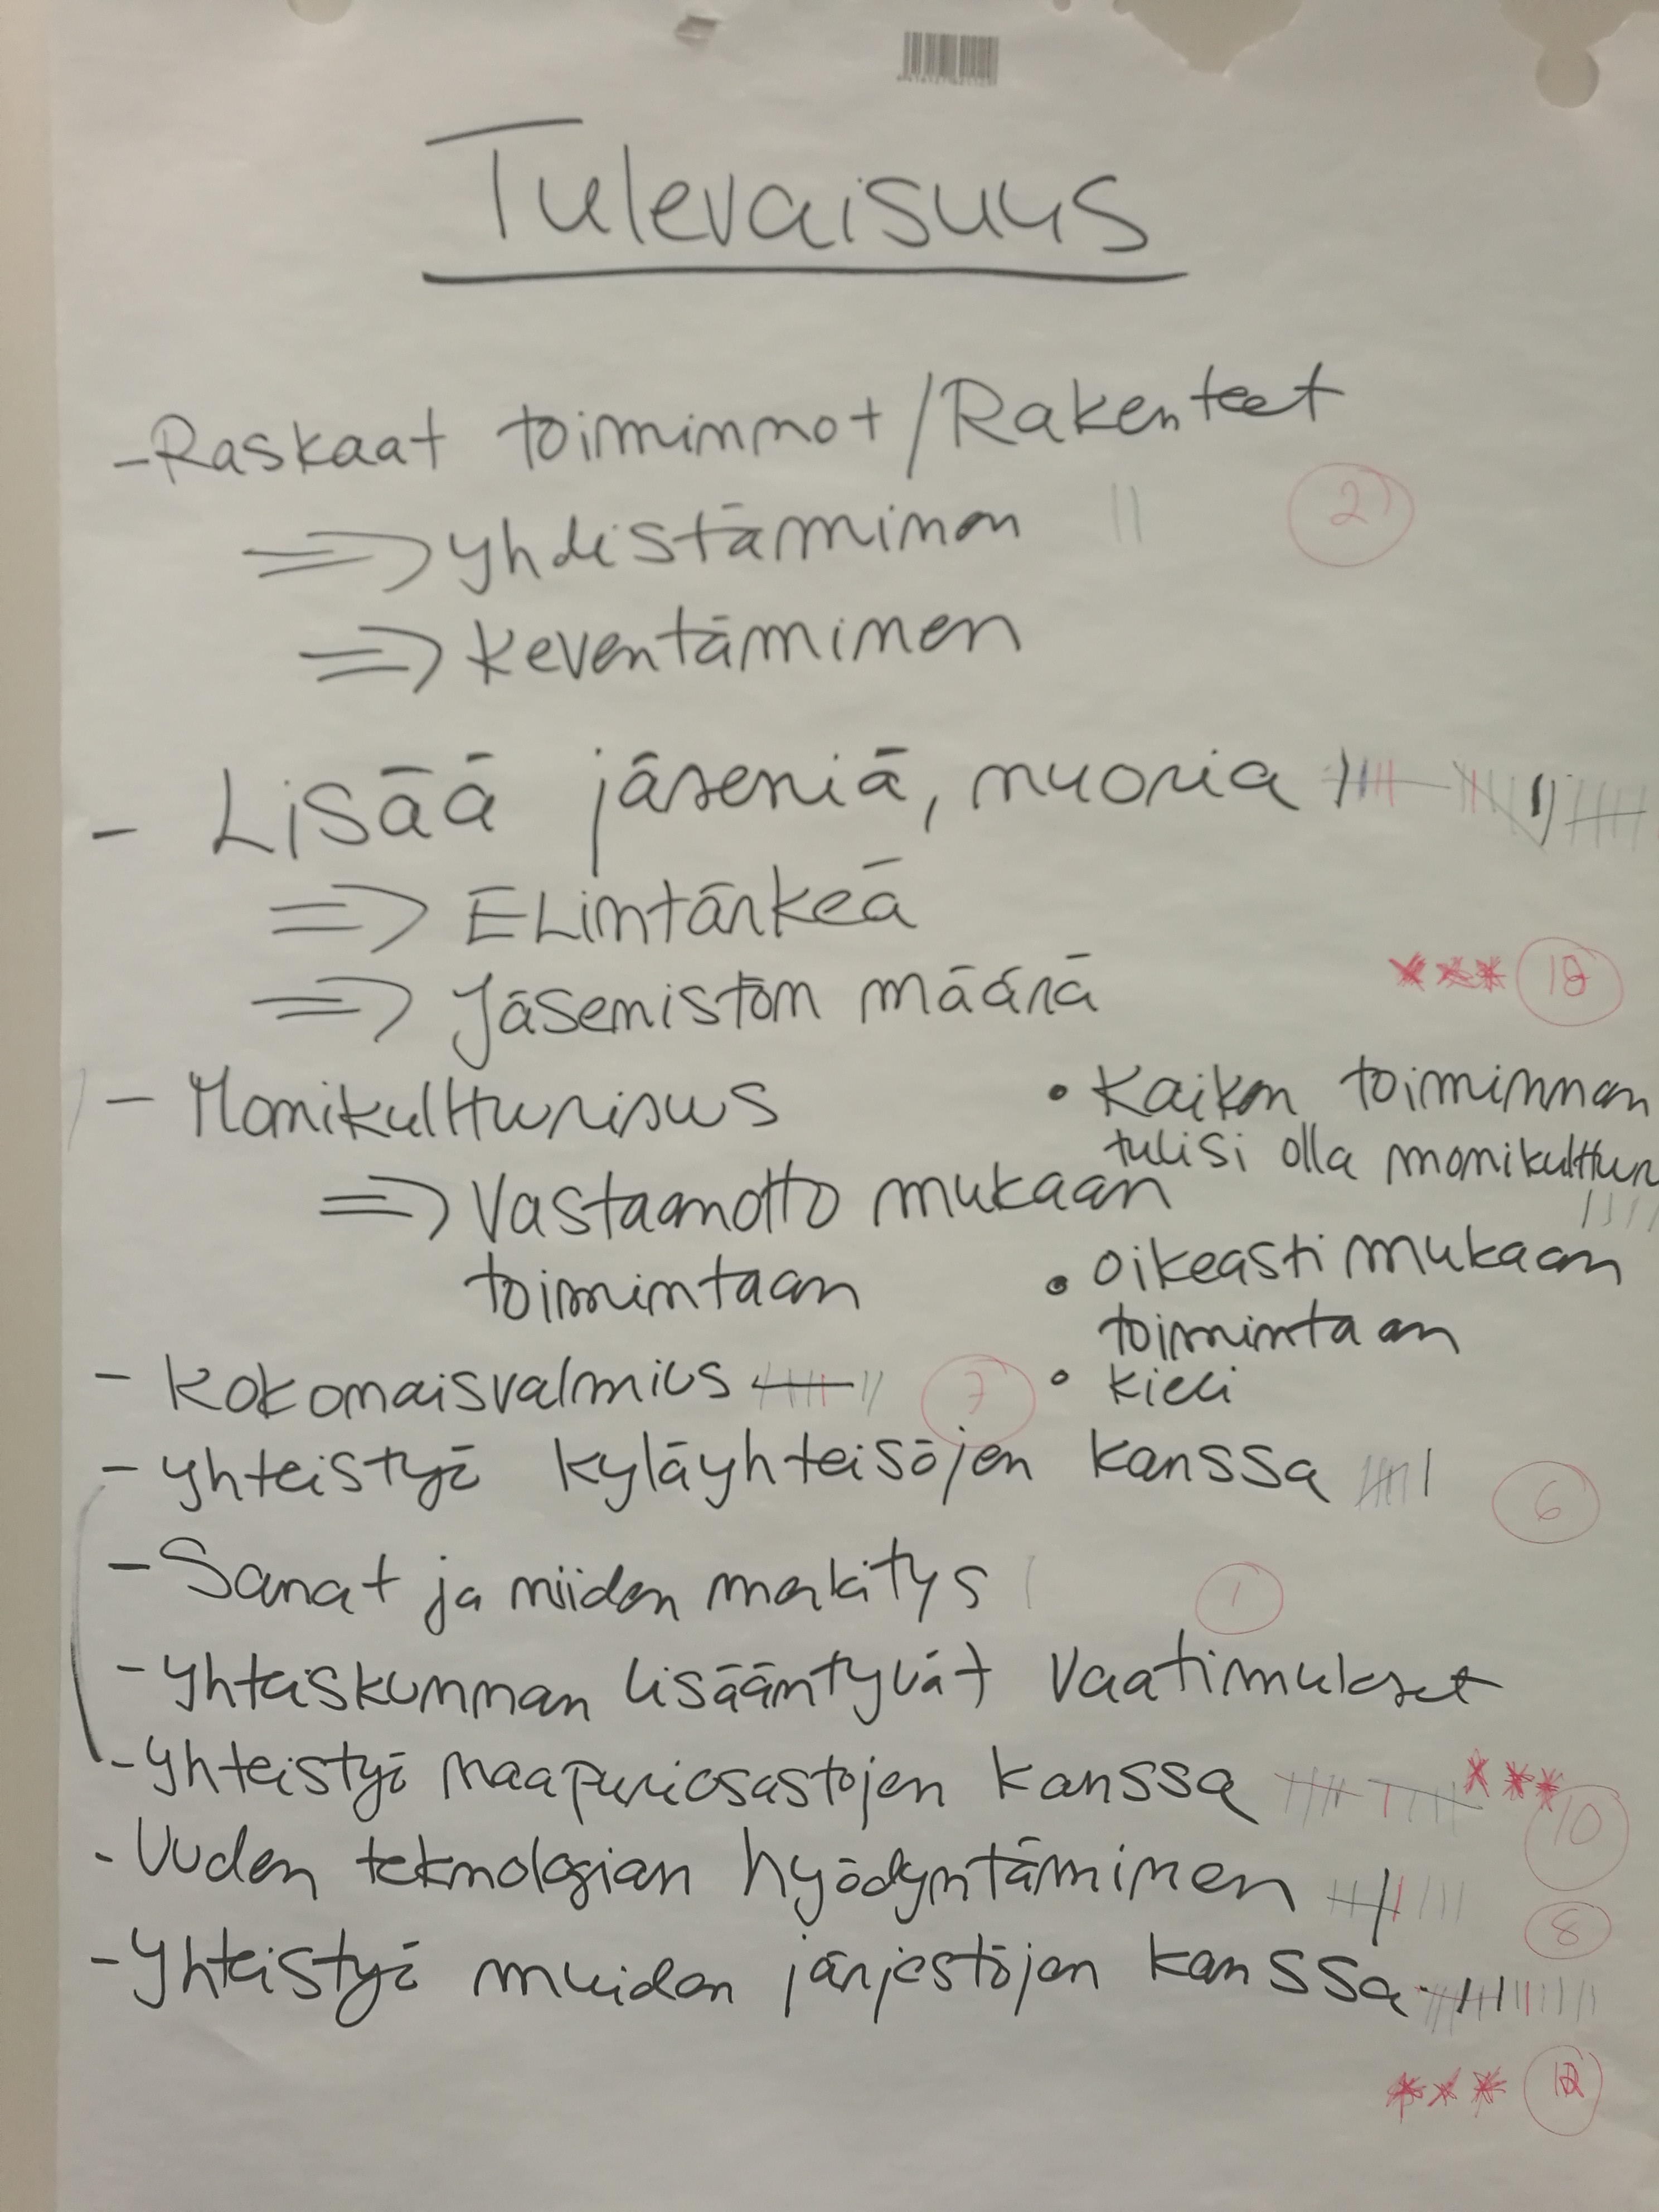 Tulevaisuus
- Raskaat toiminnot / Rakenteet
=> yhdistäminen || 2
=> keventäminen
- Lisää jäseniä, nuoria
=> Elintärkeä
=> Jäsenistön määrä *** 18
- Monikulttuurisuus
=> Vastaanotto mukaan
toimintaan
• Kaiken toiminnan
tulisi olla monikulttuur
• oikeasti mukaan
toimintaan
• kieli
- Kokonaisvalmius 7
- yhteistyö kyläyhteisöjen kanssa 6
- Sanat ja niiden merkitys | 1
- yhteiskunnan lisääntyvät vaatimukset
- yhteistyö naapuriosastojen kanssa *** 10
- Uuden teknologian hyödyntäminen 8
- Yhteistyö muiden järjestöjen kanssa
*** 12